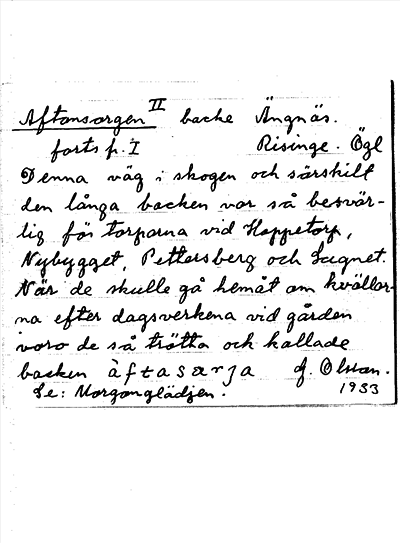 Aftonsorgen II backe Ängnäs.
forts fr. I Risinge. Ögl
Denna väg i skogen och särskilt
den långa backen var så besvär-
lig för torparna vid Hoppetorp,
Nybygget, Pettersberg och Lugnet.
När de skulle gå hemåt om kvällar-
na efter dagsverkena vid gården
voro de så trötta och kallade
backen àftasarja J. Olsson.
Se: Morgonglädjen. 1933